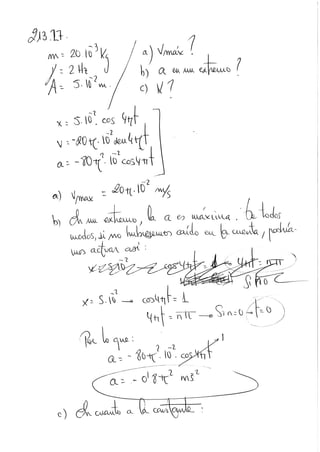 213.17.
m = 20·10⁻³ Kg
ƒ = 2 Hz
A = 5·10⁻² m.
a) Vmáx?
b) a en un extremo?
c) K?
x = 5·10⁻² cos 4πt
v = -20π·10⁻² sen 4πt
a = -80π²·10⁻² cos 4πt
a) Vmax = 20π·10⁻² m/s
b) En un extremo, la a es máxima. De todos
modos, si no hubiésemos caído en la cuenta, podría-
mos actuar así:
x = 5·10⁻² → cos 4πt = 1
4πt = nπ → Si n=0 → t=0
Por lo que:
a = -80π²·10⁻²·cos 4πt 1
a = -0'8π² m s²
c) En cuanto a la constante: